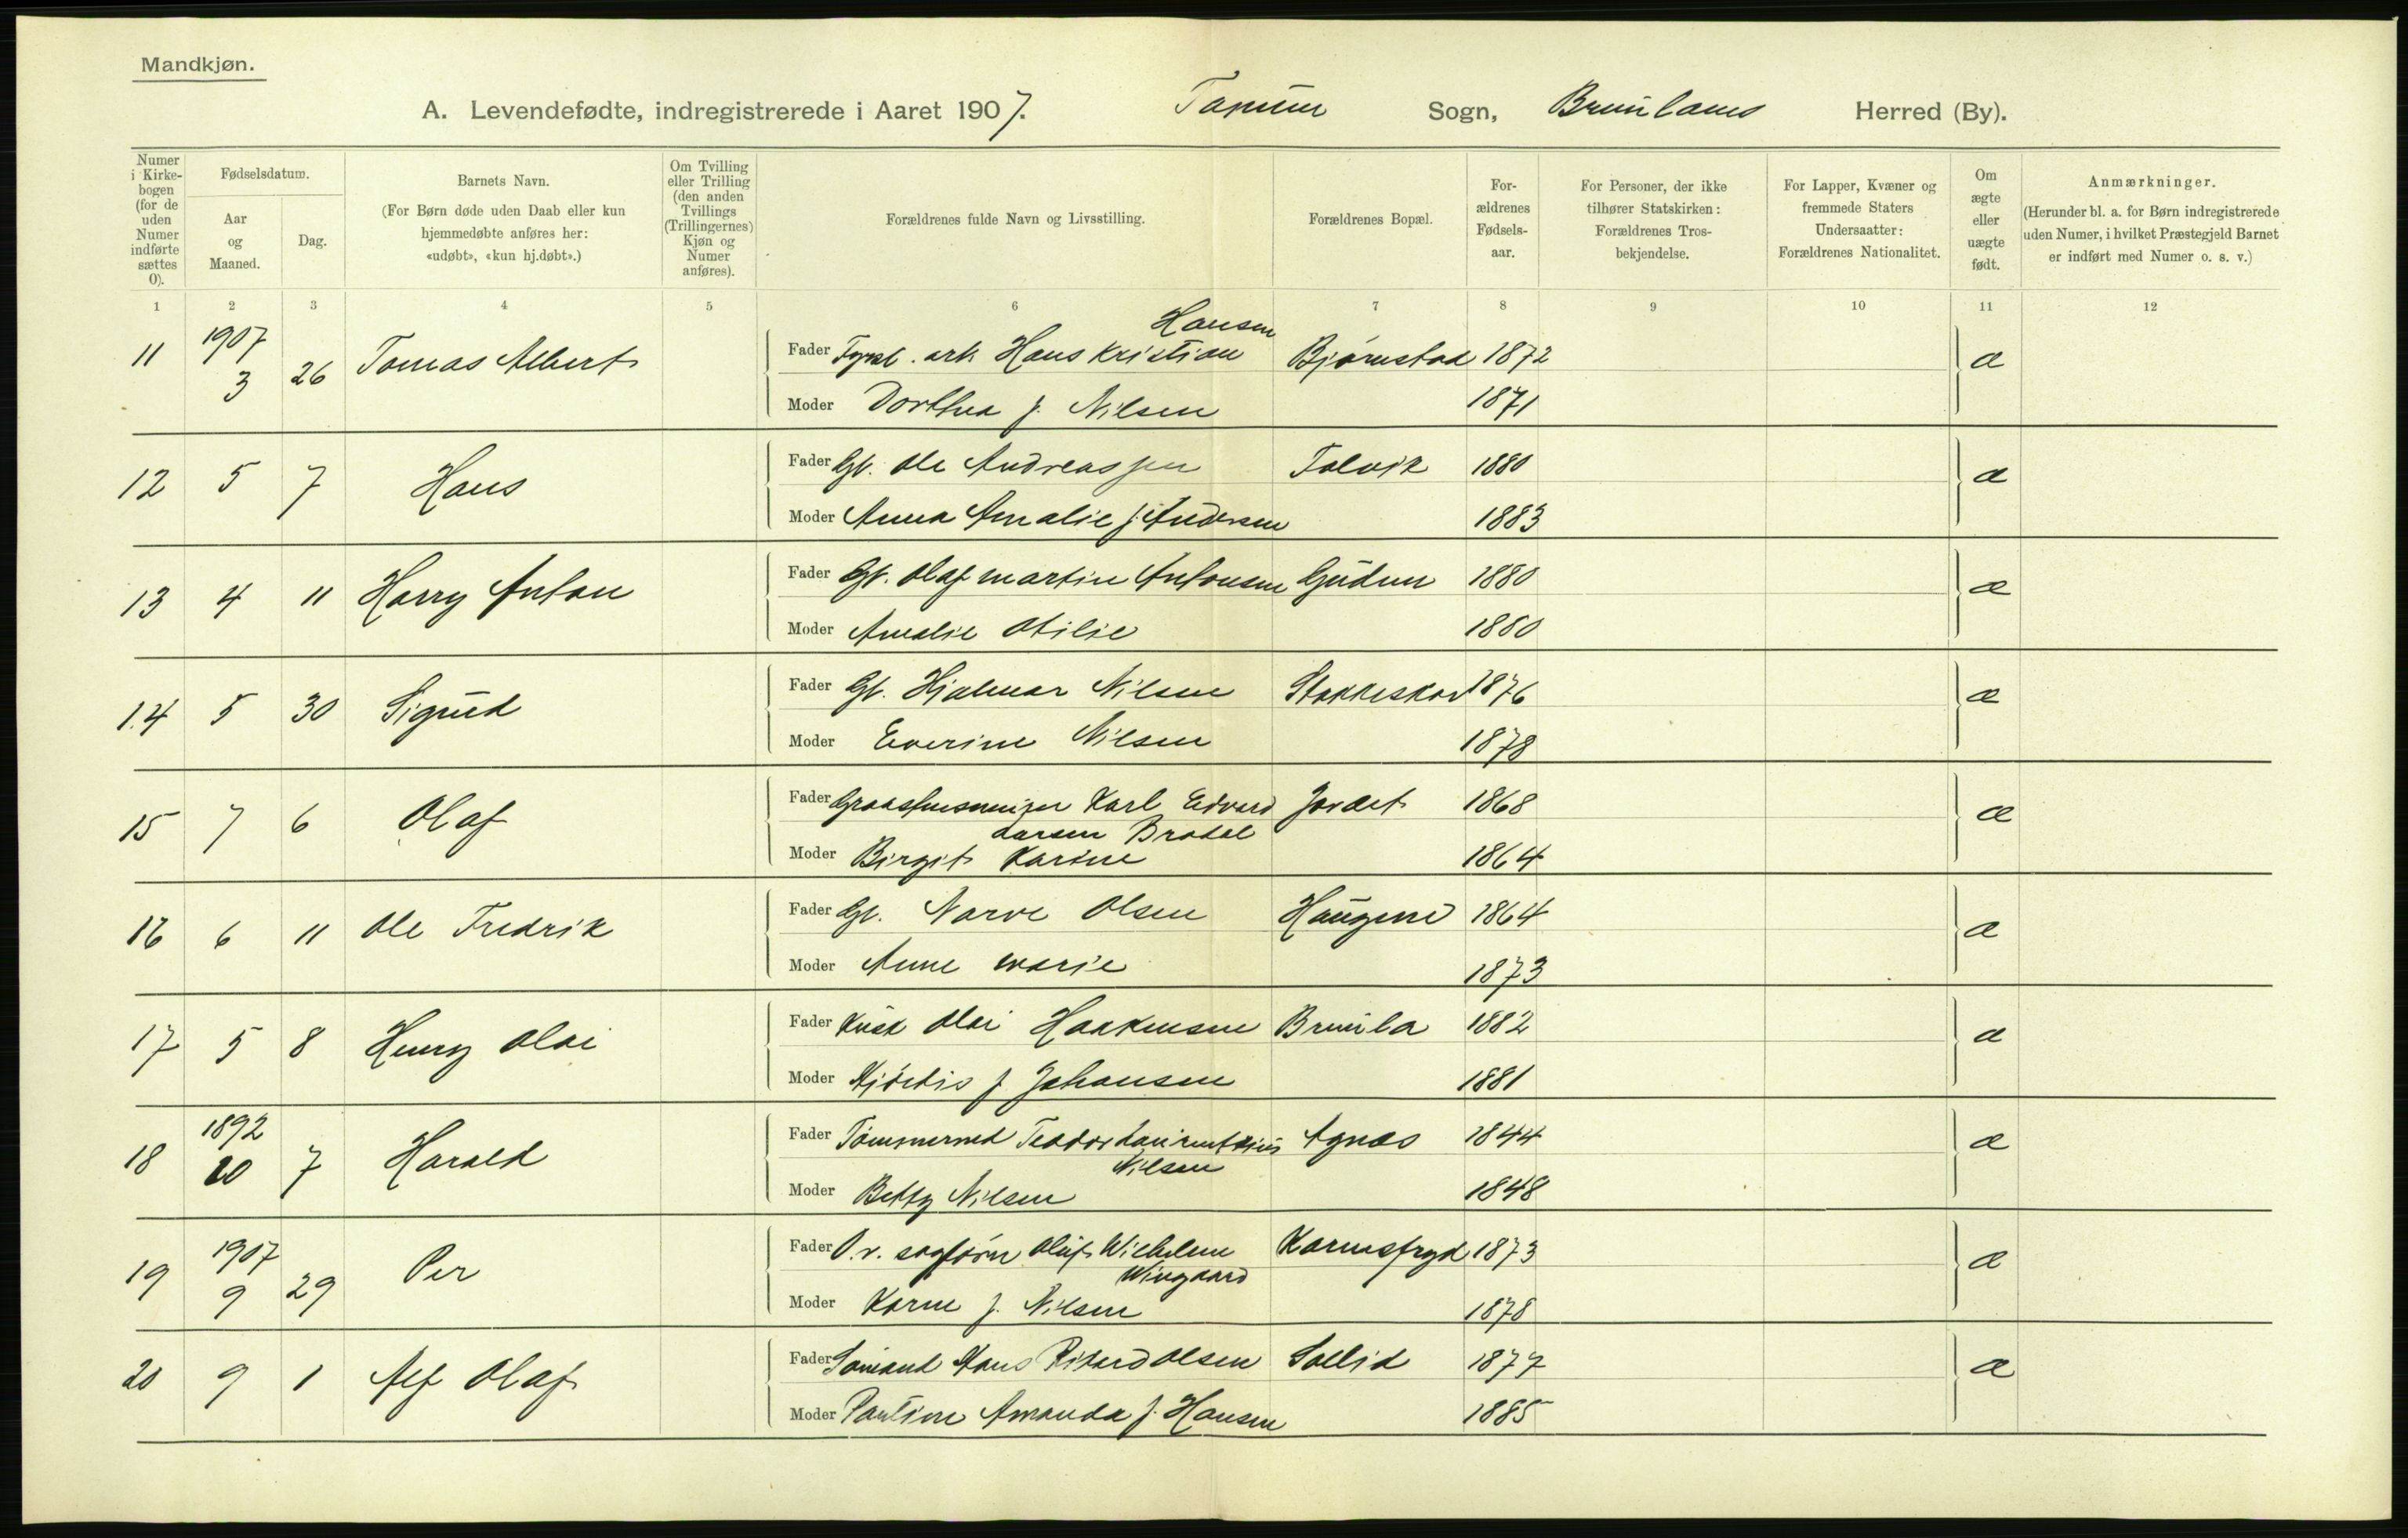 Mandkjøn.
A. Levendefødte, indregistrerede i Aaret 1907. Tanum Sogn, Brunlanes Herred (By).
Numer i Kirkebogen (for de uden Numer indførte sættes 0).
Fødselsdatum.
Aar og Maaned.
Dag.
Barnets Navn.
(For Børn døde uden Daab eller kun hjemmedøbte anføres her: «udøbt», «kun hj.døbt».)
Om Tvilling eller Trilling (den anden Tvillings (Trillingernes) Kjøn og Numer anføres).
Forældrenes fulde Navn og Livsstilling.
Forældrenes Bopæl.
Forældrenes Fødselsaar.
For Personer, der ikke tilhører Statskirken: Forældrenes Trosbekjendelse.
For Lapper, Kvæner og fremmede Staters Undersaatter: Forældrenes Nationalitet.
Om ægte eller uægte født.
Anmærkninger.
(Herunder bl. a. for Børn indregistrerede uden Numer, i hvilket Præstegjeld Barnet er indført med Numer o. s. v.)
1 2 3 4 5 6 7 8 9 10 11 12
11 1907 3 26 Tomas Albert Fader ark Hans Kristian Hansen Bjørnstad 1872 æ
Moder Dorthea f. Nilsen 1871
12 5 7 Hans Fader Gb. Ole Andreassen Tolvik 1880 æ
Moder Anna Amalie f. Andersen 1883
13 4 11 Harry Anton Fader Gb. Olaf Martin Antonsen Gudum 1880 æ
Moder Amalie Otilie 1880
14 5 30 Sigurd Fader Gb. Hjalmar Nilsen 1876 æ
Moder Everine Nilsen 1878
15 7 6 Olaf Fader Karl Edvard Larsen Bradal Jordet 1868 æ
Moder Birgit Karine 1864
16 6 11 Ole Fredrik Fader Gb. Narve Olsen Haugene 1864 æ
Moder Anne Marie 1873
17 5 8 Henry Olai Fader Kusk Olai Haakensen Brunla 1882 æ
Moder Hjördis f Johansen 1881
18 1892 10 7 Harald Fader Tømmermd Teodor Laurentsius Nilsen Agnes 1844 æ
Moder Betty Nilsen 1848
19 1907 9 29 Per Fader O.r. sagfører Oluf Wilhelm Wingaard Karensfryd 1873 æ
Moder Karne f. Nilsen 1878
20 9 1 Alf Olaf Fader Sømand Hans Rikard Olsen Sollid 1877 æ
Moder Pauline Amanda f. Hansen 1885